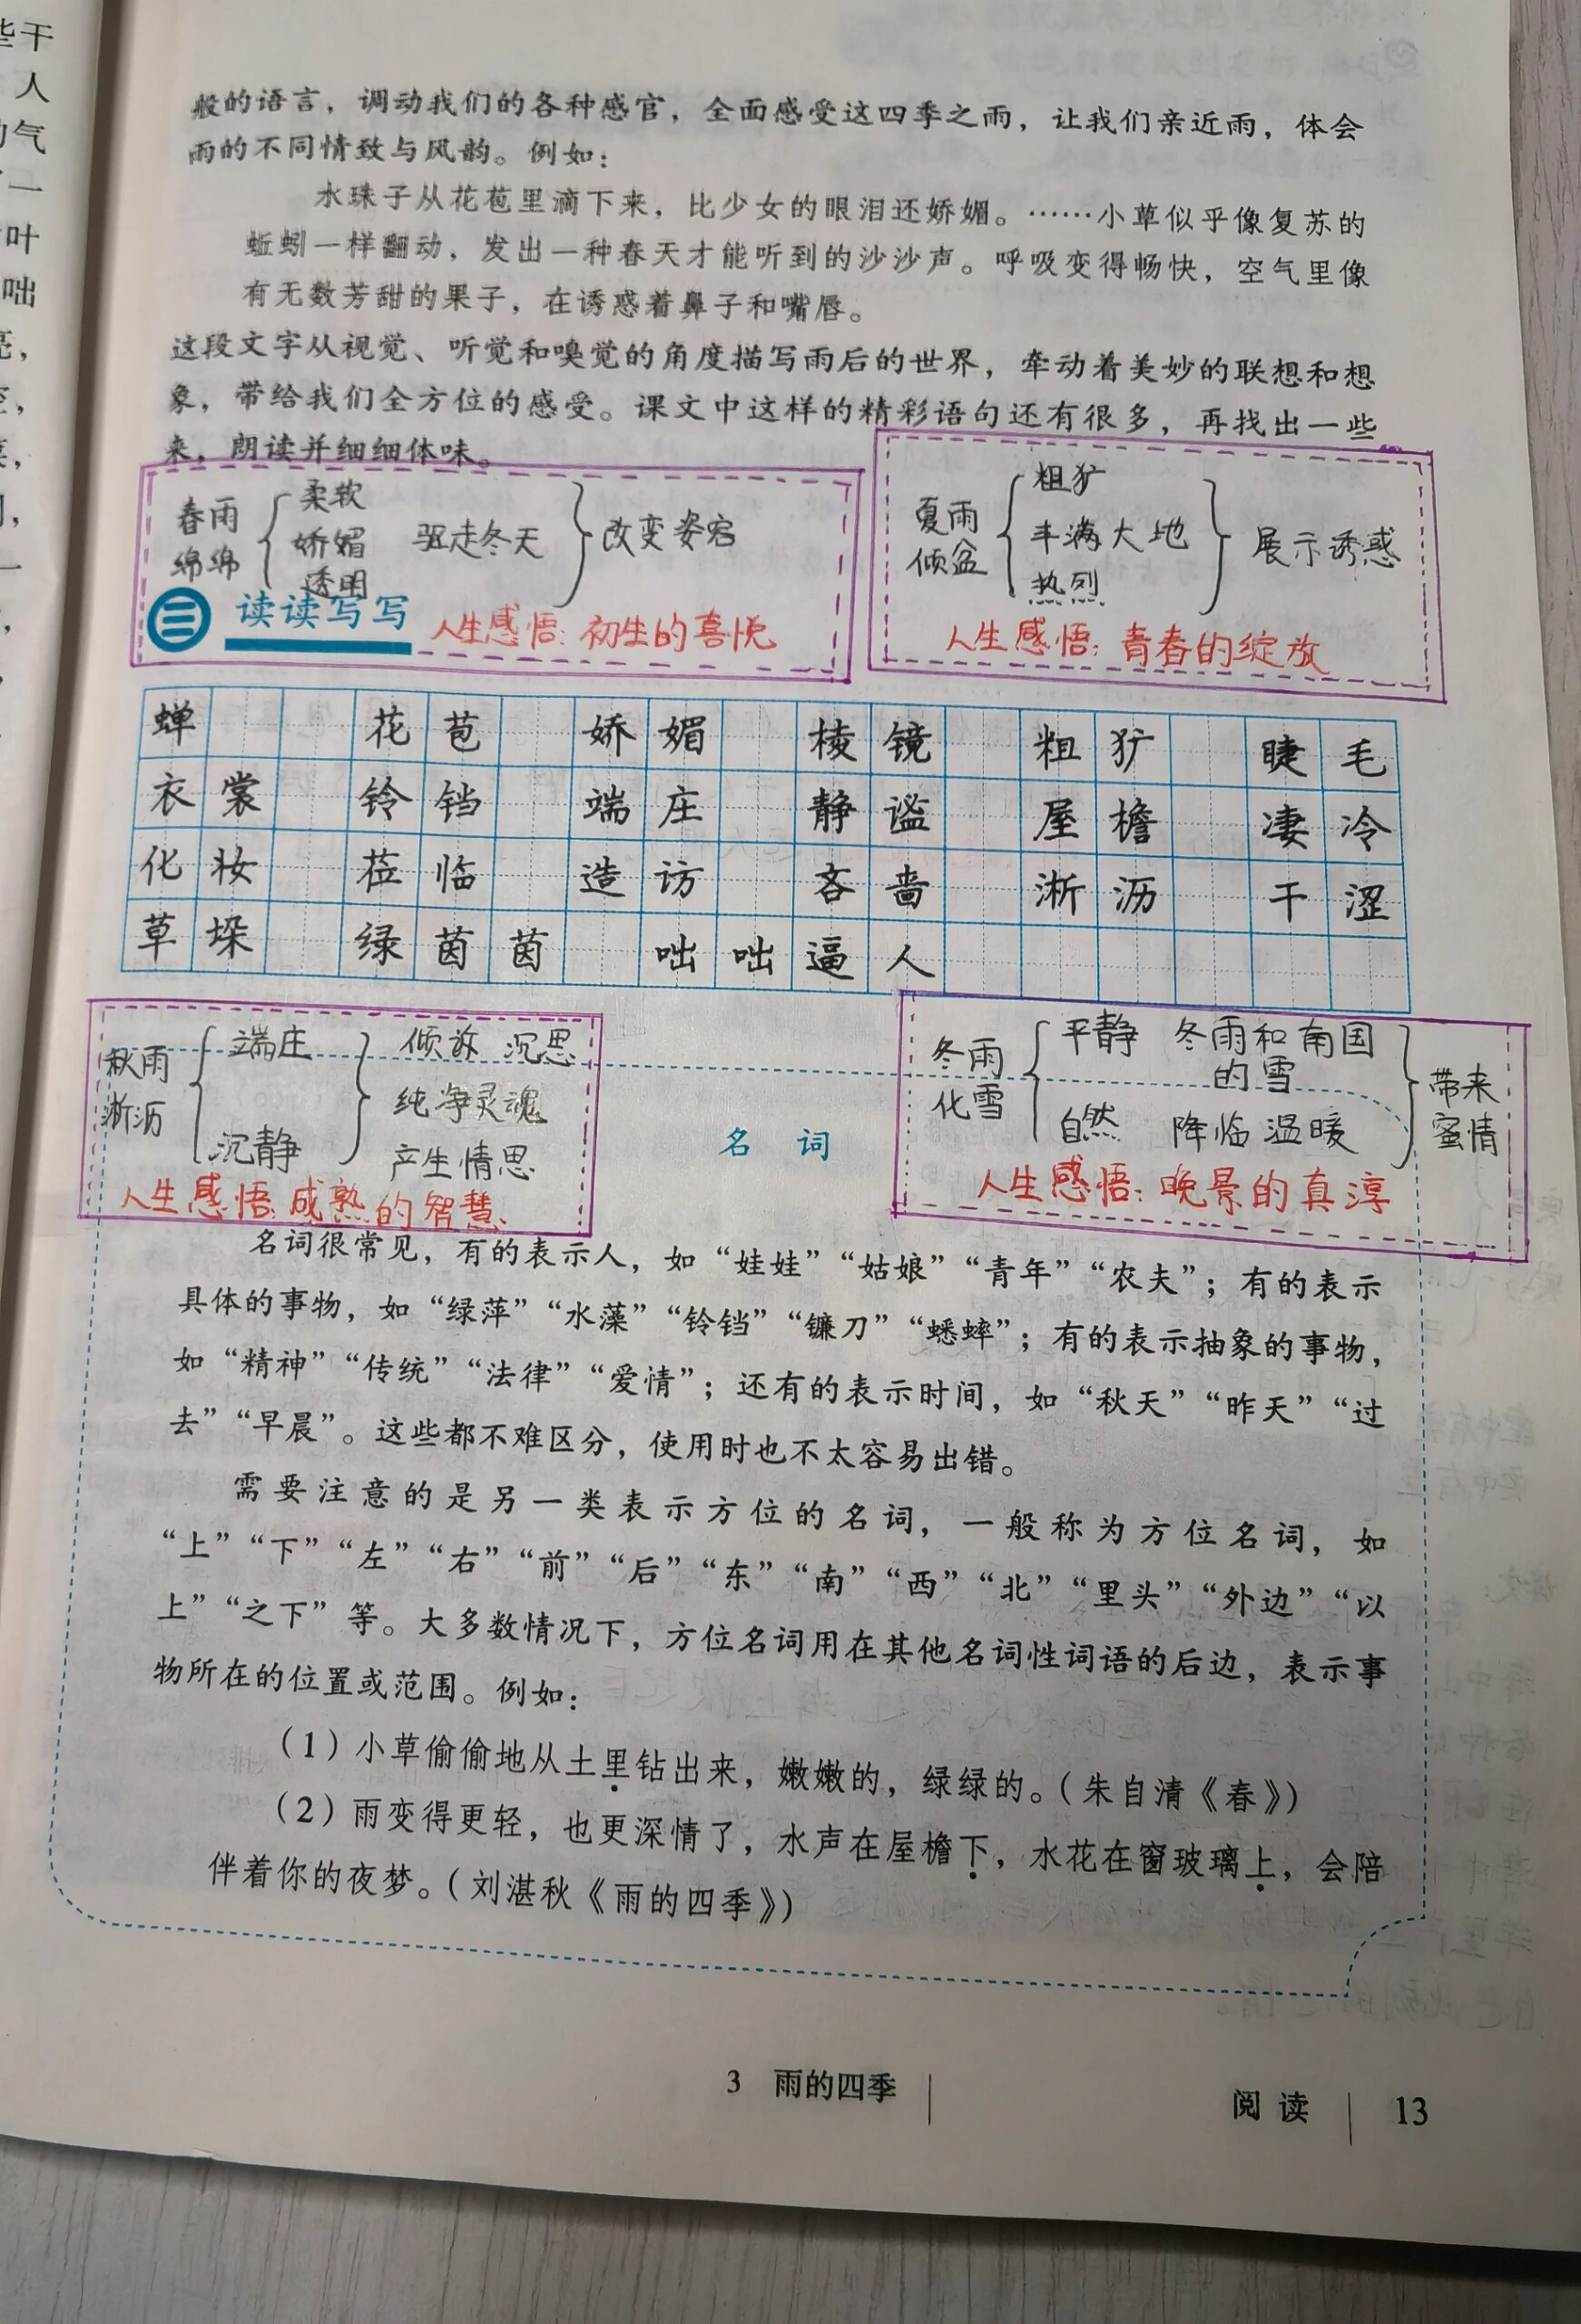 些干
人
气
一
叶
咄
亮，
般的语言，调动我们的各种感官，全面感受这四季之雨，让我们亲近雨，体会
雨的不同情致与风韵。例如：
水珠子从花苞里滴下来，比少女的眼泪还娇媚。……小草似乎像复苏的
蚯蚓一样翻动，发出一种春天才能听到的沙沙声。呼吸变得畅快，空气里像
有无数芳甜的果子，在诱惑着鼻子和嘴唇。
这段文字从视觉、听觉和嗅觉的角度描写雨后的世界，牵动着美妙的联想和想
象，带给我们全方位的感受。课文中这样的精彩语句还有很多，再找出一些
来，朗读并细细体味。
春雨 绵绵
柔软
娇媚 驱走冬天 改变姿容
透明
夏雨 倾盆
粗犷
丰满大地 展示诱惑
热烈
三 读读写写
人生感悟：初生的喜悦
人生感悟：青春的绽放
蝉 花苞 娇媚 棱镜 粗犷 睫毛
衣裳 铃铛 端庄 静谧 屋檐 凄冷
化妆 莅临 造访 吝啬 淅沥 干涩
草垛 绿茵茵 咄咄逼人
秋雨 淅沥
端庄 倾诉 沉思
纯净灵魂
沉静 产生情思
人生感悟：成熟的智慧
冬雨 化雪
平静 冬雨和南国的雪
自然 降临温暖
带来蜜情
人生感悟：晚景的真淳
名 词
名词很常见，有的表示人，如“娃娃”“姑娘”“青年”“农夫”；有的表示
具体的事物，如“绿萍”“水藻”“铃铛”“镰刀”“蟋蟀”；有的表示抽象的事物，
如“精神”“传统”“法律”“爱情”；还有的表示时间，如“秋天”“昨天”“过
去”“早晨”。这些都不难区分，使用时也不太容易出错。
需要注意的是另一类表示方位的名词，一般称为方位名词，如
“上”“下”“左”“右”“前”“后”“东”“南”“西”“北”“里头”“外边”“以
上”“之下”等。大多数情况下，方位名词用在其他名词性词语的后边，表示事
物所在的位置或范围。例如：
（1）小草偷偷地从土里钻出来，嫩嫩的，绿绿的。（朱自清《春》）
（2）雨变得更轻，也更深情了，水声在屋檐下，水花在窗玻璃上，会陪
伴着你的夜梦。（刘湛秋《雨的四季》）
3 雨的四季
阅读 13